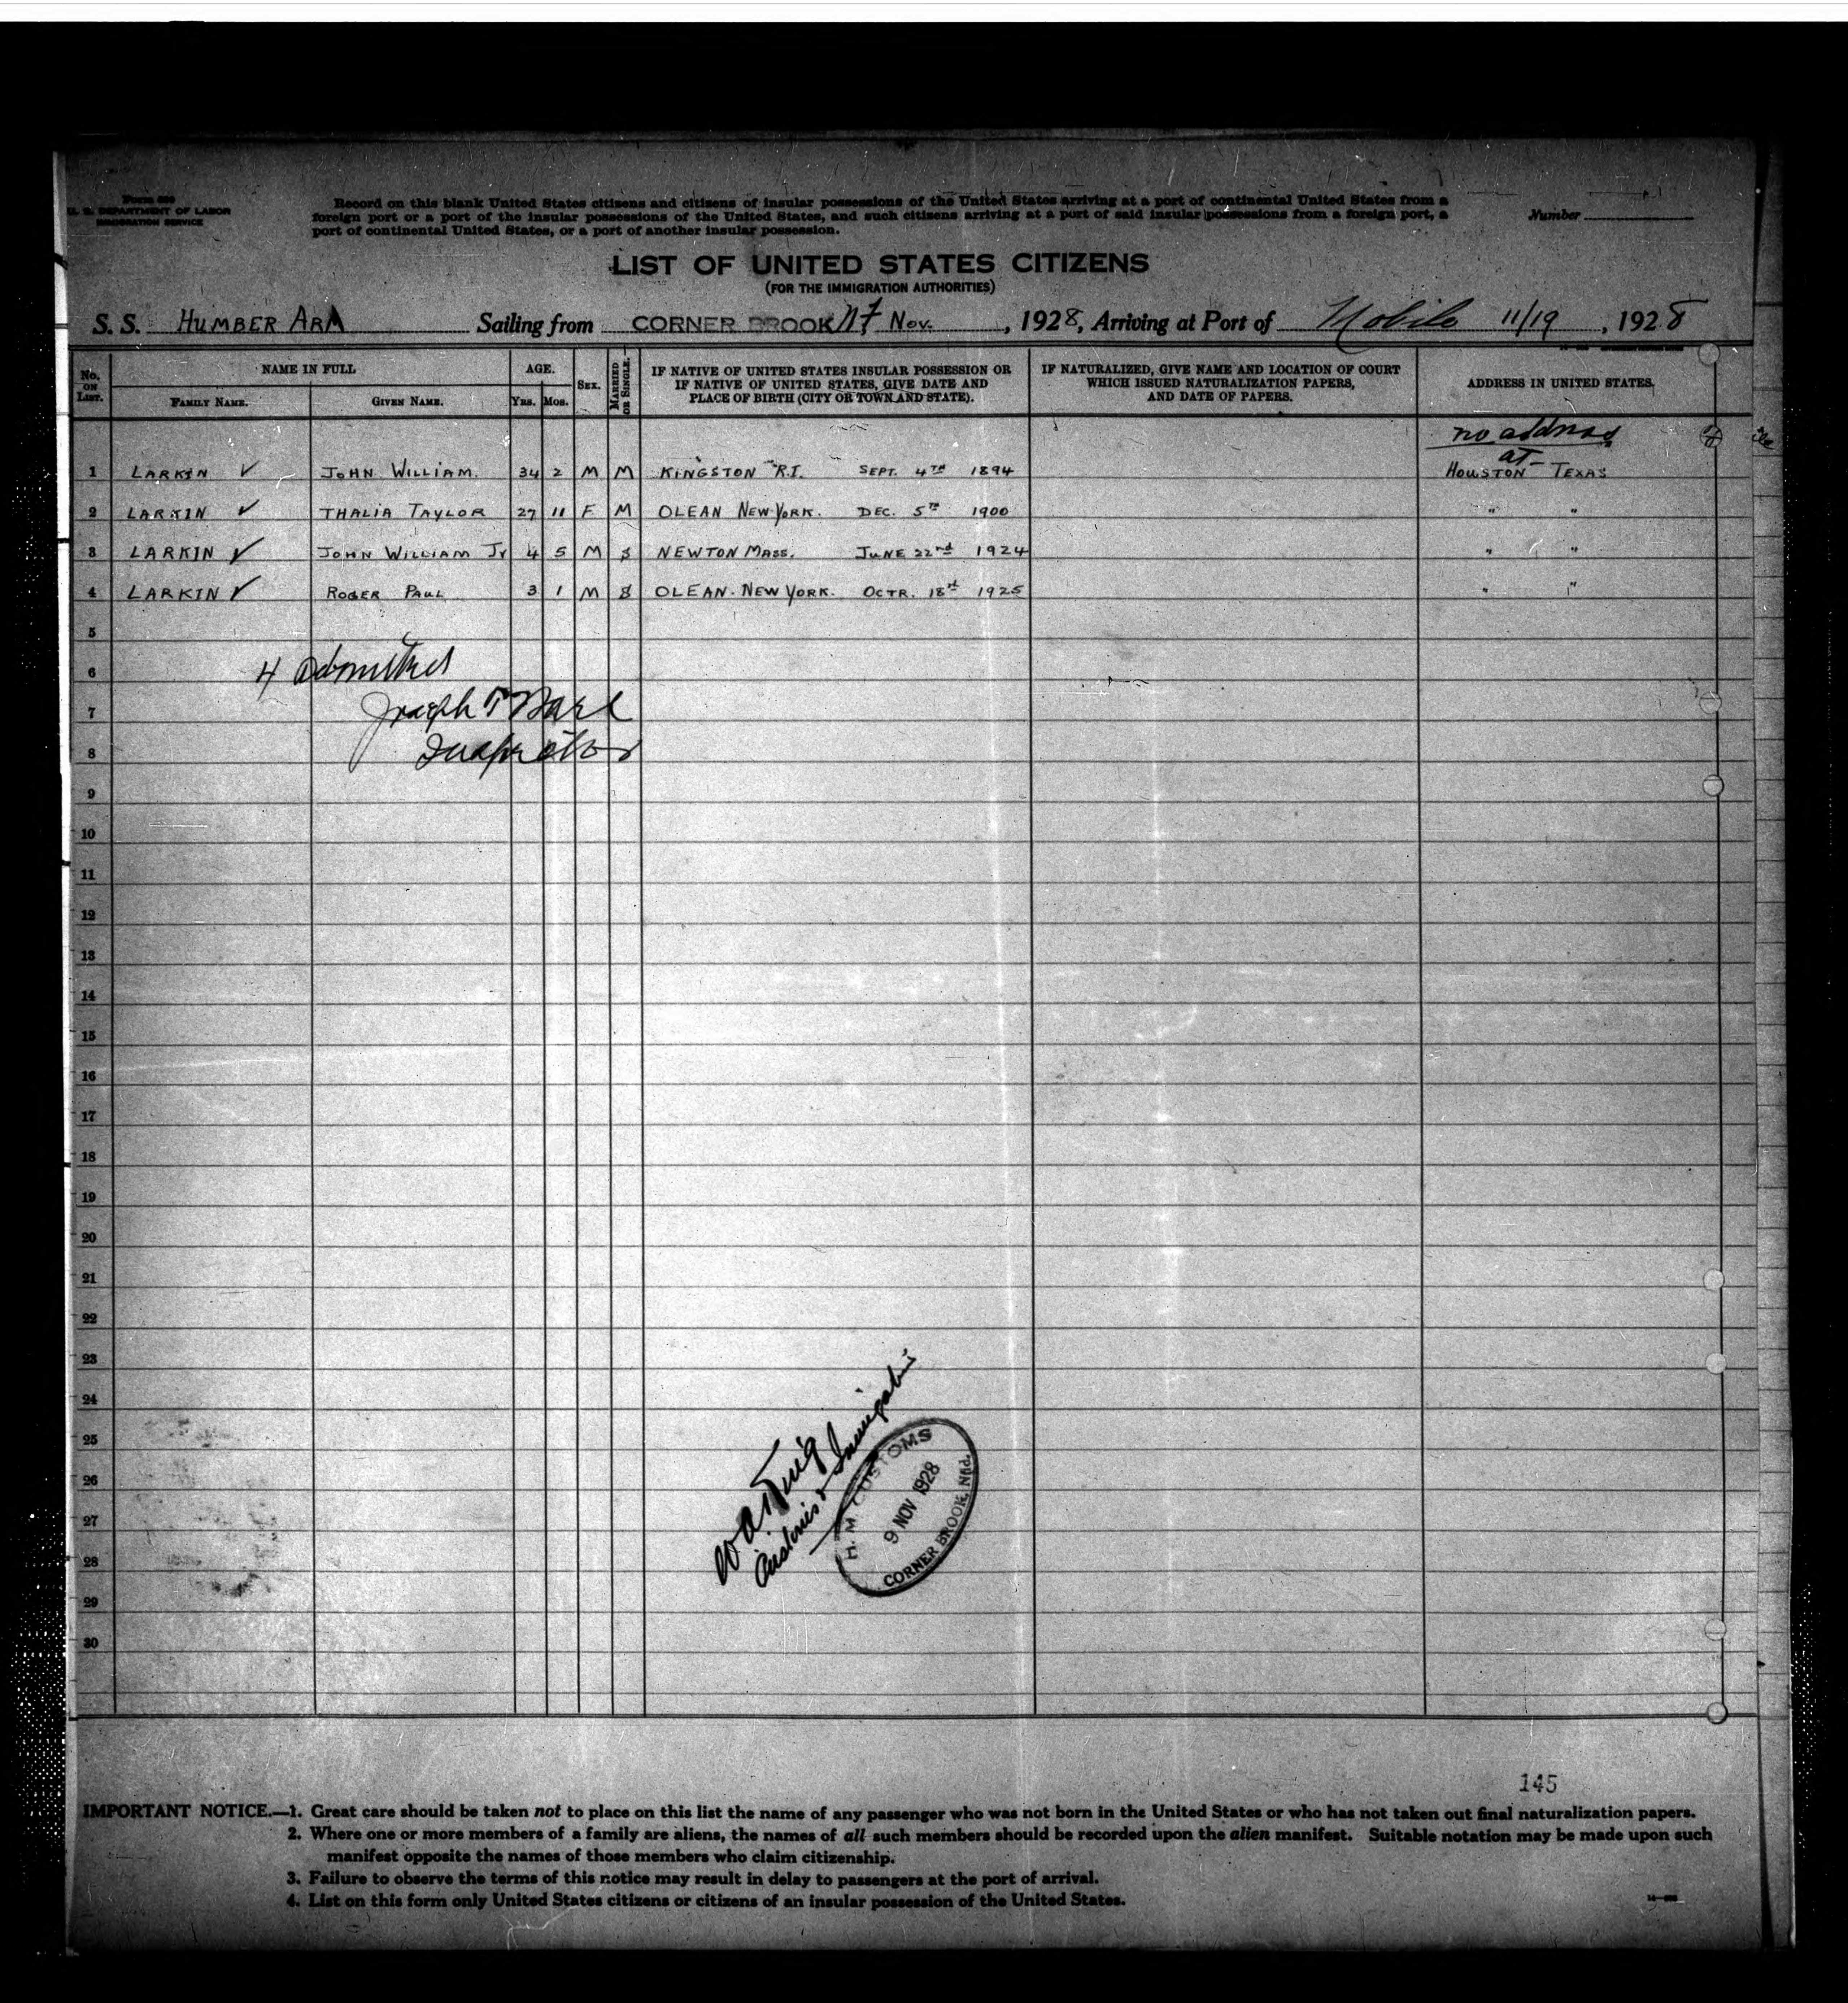 Form 630
U. S. DEPARTMENT OF LABOR
IMMIGRATION SERVICE
Record on this blank United States citizens and citizens of insular possessions of the United States arriving at a port of continental United States from a
foreign port or a port of the insular possessions of the United States, and such citizens arriving at a port of said insular possessions from a foreign port, a
port of continental United States, or a port of another insular possession.
Number
LIST OF UNITED STATES CITIZENS
(FOR THE IMMIGRATION AUTHORITIES)
S. S. HUMBER ARM Sailing from CORNER BROOK NF Nov. , 1928, Arriving at Port of Mobile 11/19 , 1928
No. ON LIST. NAME IN FULL AGE. SEX. MARRIED OR SINGLE. IF NATIVE OF UNITED STATES INSULAR POSSESSION OR IF NATIVE OF UNITED STATES, GIVE DATE AND PLACE OF BIRTH (CITY OR TOWN AND STATE). IF NATURALIZED, GIVE NAME AND LOCATION OF COURT WHICH ISSUED NATURALIZATION PAPERS, AND DATE OF PAPERS. ADDRESS IN UNITED STATES.
FAMILY NAME. GIVEN NAME. YRS. MOS.
no address
at
1 LARKIN ✓ JOHN WILLIAM. 34 2 M M KINGSTON R.I. SEPT. 4TH 1894 HOUSTON TEXAS
2 LARKIN ✓ THALIA TAYLOR 27 11 F M OLEAN NEW YORK. DEC. 5TH 1900 " "
3 LARKIN ✓ JOHN WILLIAM Jr 4 5 M S NEWTON MASS. JUNE 22nd 1924 " "
4 LARKIN ✓ ROGER PAUL 3 1 M S OLEAN. NEW YORK. OCTR. 18st 1925 " "
5
6 4 Admitted
7 Joseph T
8 Inspector
9
10
11
12
13
14
15
16
17
18
19
20
21
22
23
24
25
26
27
28
29
30
Customs & Immigration
H. M. CUSTOMS
9 NOV 1928
CORNER BROOK, Nfld.
145
IMPORTANT NOTICE.—1. Great care should be taken not to place on this list the name of any passenger who was not born in the United States or who has not taken out final naturalization papers.
2. Where one or more members of a family are aliens, the names of all such members should be recorded upon the alien manifest. Suitable notation may be made upon such
manifest opposite the names of those members who claim citizenship.
3. Failure to observe the terms of this notice may result in delay to passengers at the port of arrival.
4. List on this form only United States citizens or citizens of an insular possession of the United States.